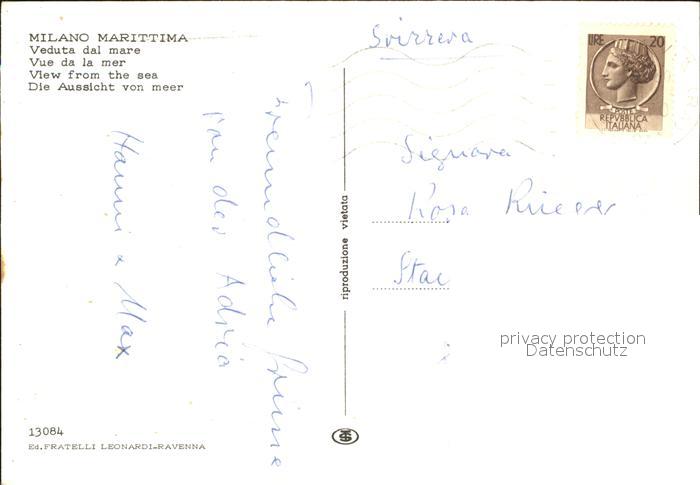 MILANO MARITTIMA
Veduta dal mare
Vue da la mer
View from the sea
Die Aussicht von meer
Svizzera
LIRE 20
POSTE
REPVBBLICA
ITALIANA
Freundliche Grüsse
von der Adria
Hanni + Max
riproduzione vietata
Signora
Rosa
privacy protection
Datenschutz
13084
Ed. FRATELLI LEONARDI-RAVENNA